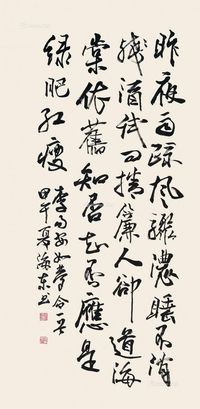 昨夜雨疏风骤濃睡不消
残酒试问捲簾人卻道海
棠依舊知否知否應是
绿肥红瘦
李易安如夢令一首
甲午夏海东书